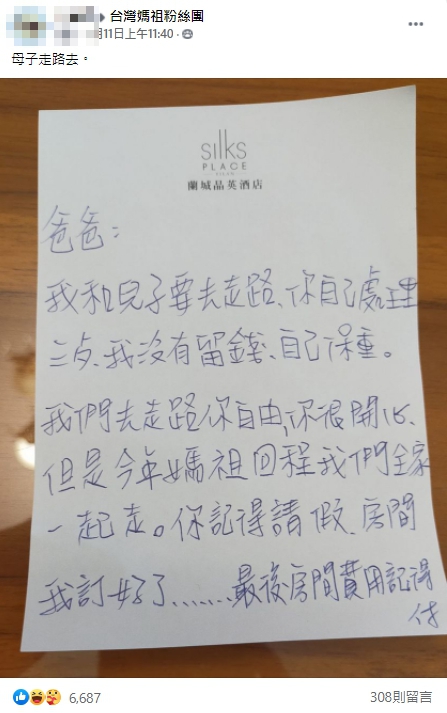 台灣媽祖粉絲團
月11日上午11:40
母子走路去。
silks
PLACE
蘭城晶英酒店
爸爸:
我和兒子要去走路、你自己處理
三歺、我沒有留錢、自己保重。
我們去走路你自由,你很開心、
但是今年媽祖回程我們全家
一起走。你記得請假、房間
我訂好了......、最後房間費用記得
付
6,687
308則留言